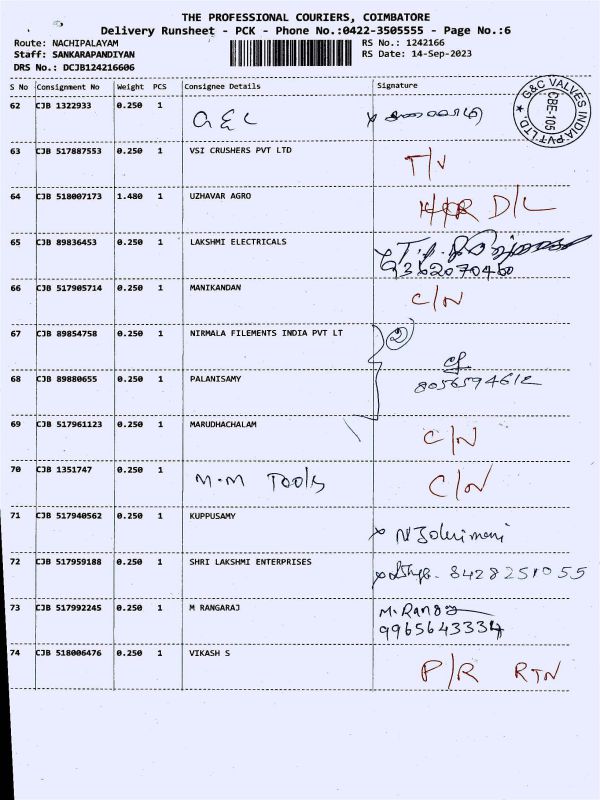 THE PROFESSIONAL COURIERS, COIMBATORE
Delivery Runsheet - PCK - Phone No.:0422-3505555 - Page No.:6
Route: NACHIPALAYAM RS No.: 1242166
Staff: SANKARAPANDIYAN RS Date: 14-Sep-2023
DRS No.: DCJB124216606
S No Consignment No Weight PCS Consignee Details Signature
62 CJB 1322933 0.250 1 G & C
G&C VALVES INDIA PVT LTD. ★ CBE-105
63 CJB 517887553 0.250 1 VSI CRUSHERS PVT LTD T/V
64 CJB 518007173 1.480 1 UZHAVAR AGRO D/L
65 CJB 89836453 0.250 1 LAKSHMI ELECTRICALS
9362070460
66 CJB 517905714 0.250 1 MANIKANDAN C/N
67 CJB 89854758 0.250 1 NIRMALA FILEMENTS INDIA PVT LT 2
68 CJB 89880655 0.250 1 PALANISAMY 8056594612
69 CJB 517961123 0.250 1 MARUDHACHALAM C/N
70 CJB 1351747 0.250 1 M.M Tools C/N
71 CJB 517940562 0.250 1 KUPPUSAMY
72 CJB 517959188 0.250 1 SHRI LAKSHMI ENTERPRISES 8428251055
73 CJB 517992245 0.250 1 M RANGARAJ M. Ranga
9965643334
74 CJB 518006476 0.250 1 VIKASH S P/R RTN